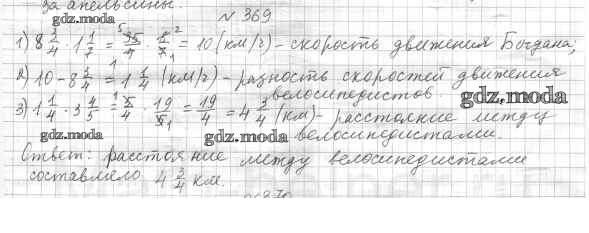 за апельсины.
gdz.moda
№ 369
1) 8 3/4 · 1 1/7 = 35/4 · 8/7 = 10 (км/г) - скорость движения Богдана;
2) 10 - 8 3/4 = 1 1/4 (км/г) - разность скоростей движения
велосипедистов.
gdz.moda
3) 1 1/4 · 3 4/5 = 5/4 · 19/5 = 19/4 = 4 3/4 (км) - расстояние между
gdz.moda gdz.moda велосипедистами.
Ответ: расстояние между велосипедистами
составляло 4 3/4 км.